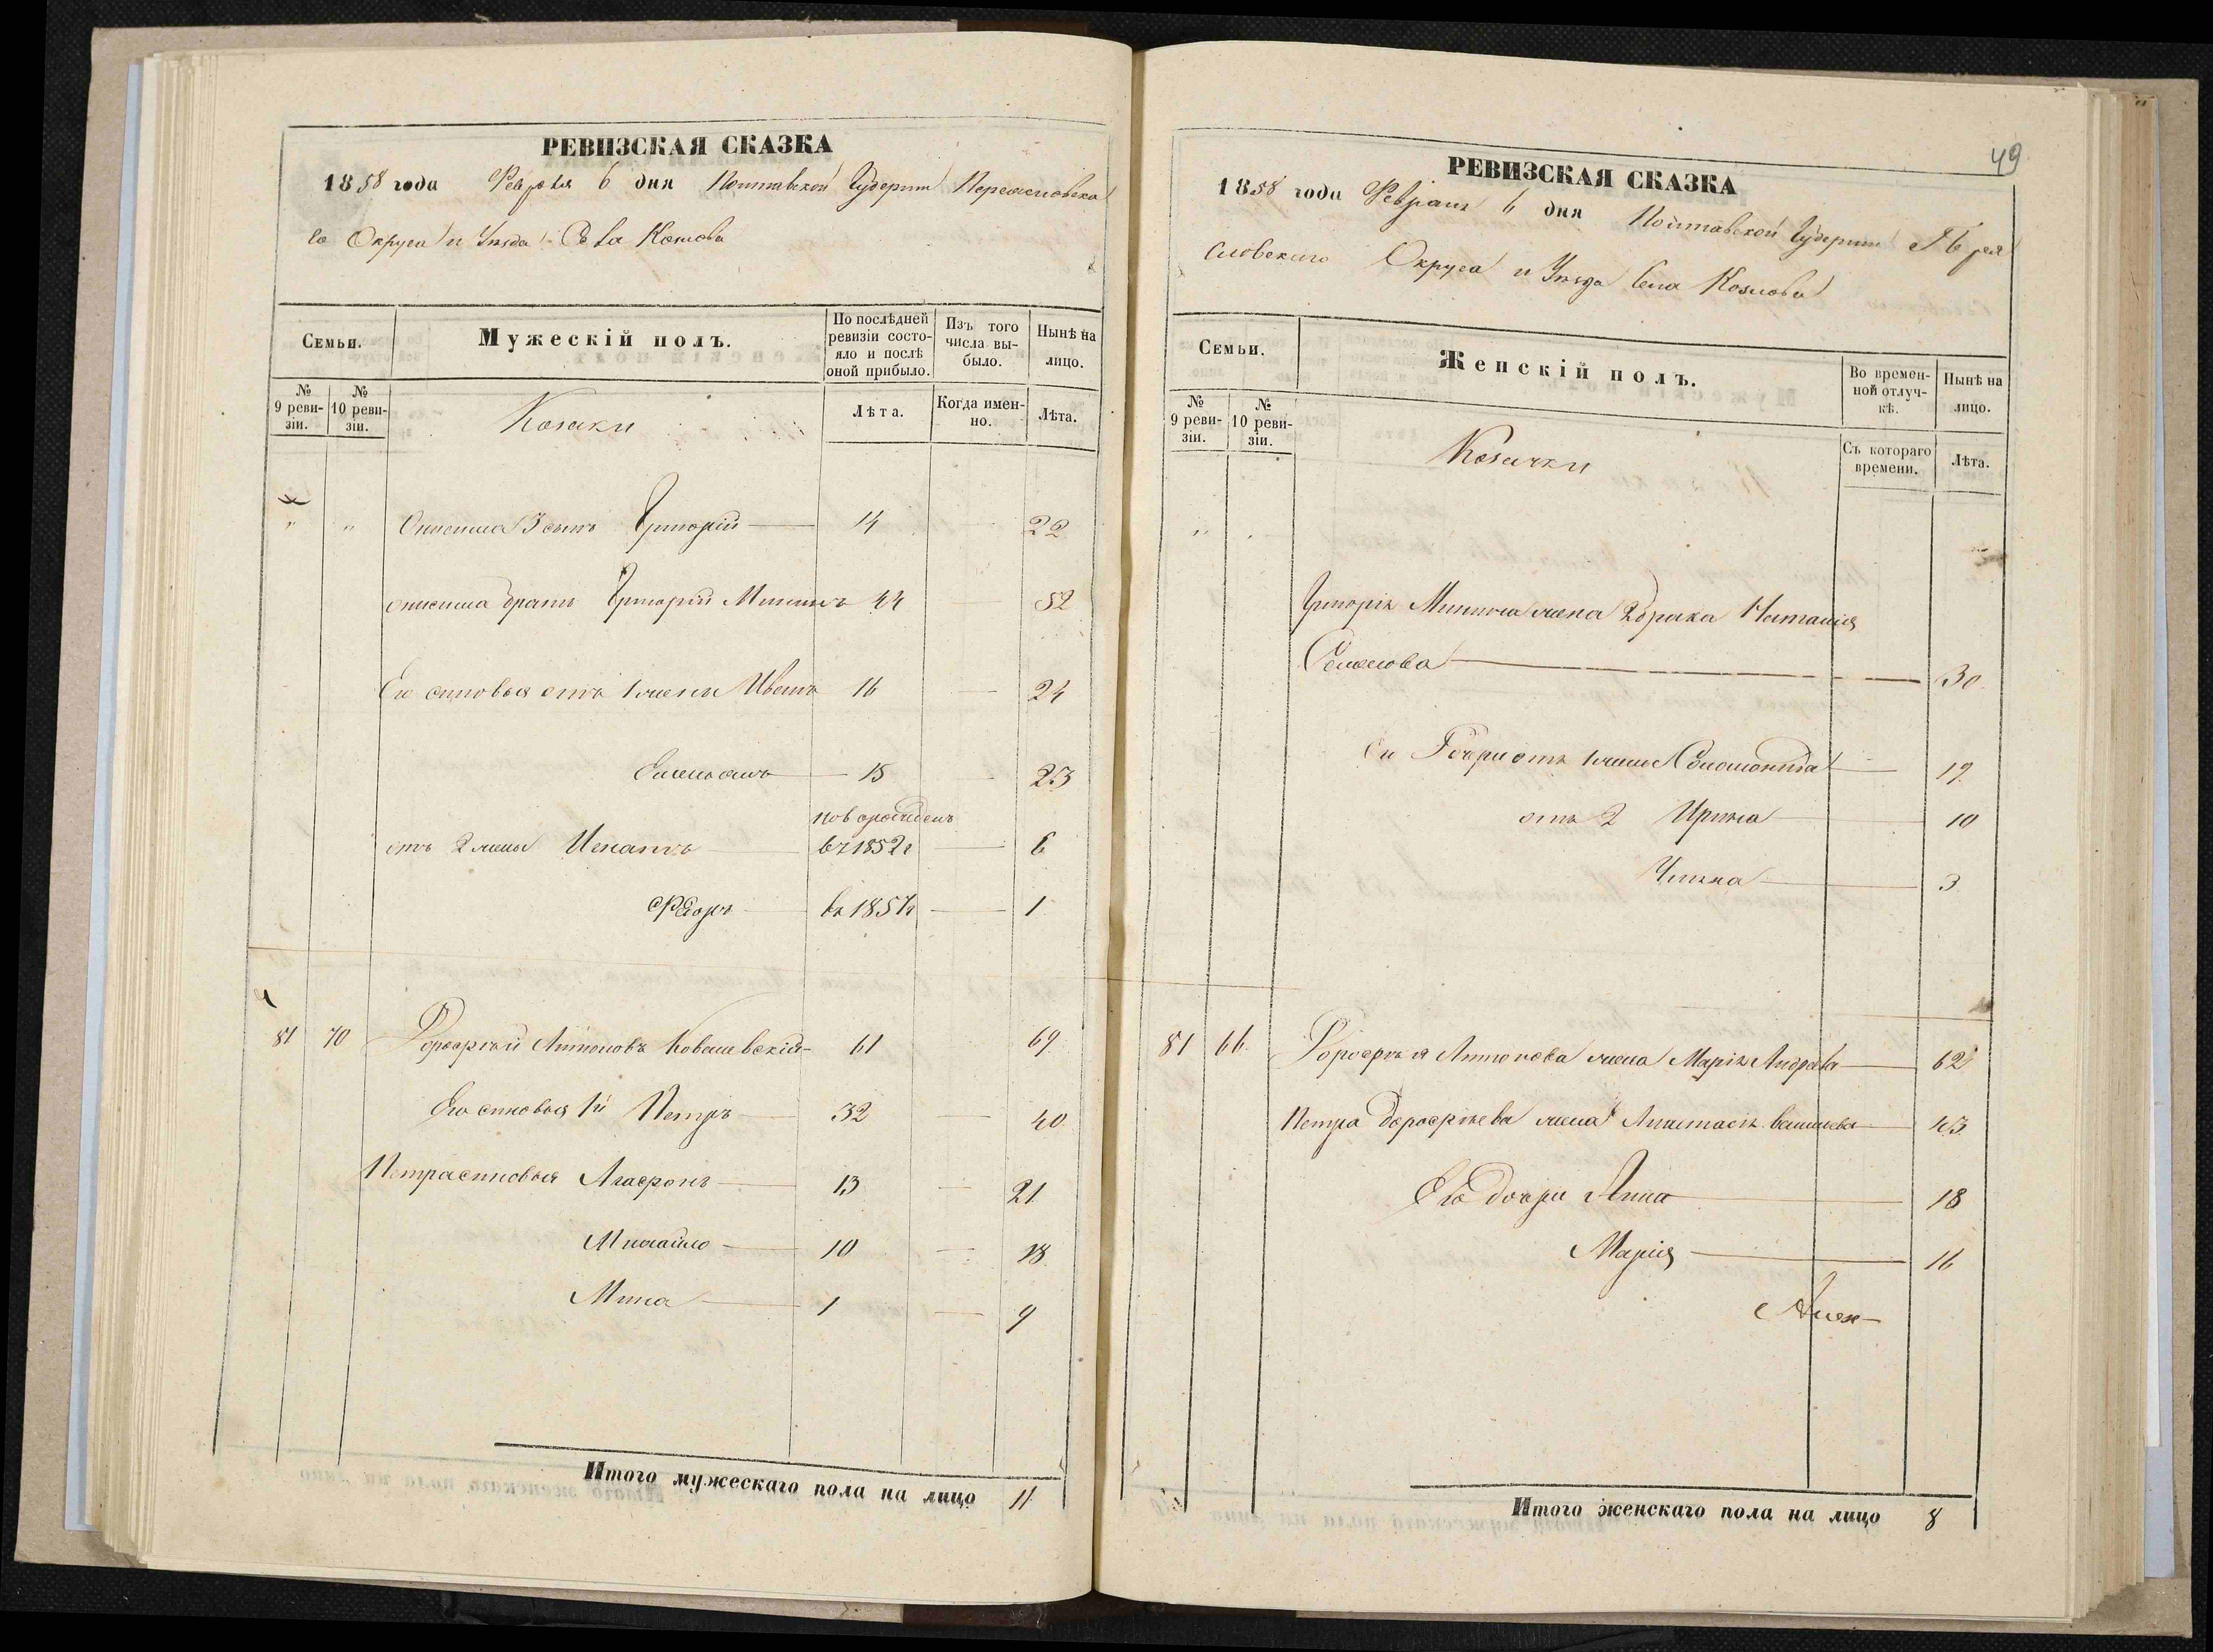 РЕВИЗСКАЯ СКАЗКА
1858 года Февраля 6 дня Полтавской Губернии Переясловска
го Округа и Уѣзда Села Козлова
Семьи.
Мужескій полъ.
По послѣдней ревизіи состояло и послѣ оной прибыло.
Изъ того числа выбыло.
Нынѣ на лицо.
№ 9 ревизіи.
№ 10 ревизіи.
Козаки
Лѣта.
Когда именно.
Лѣта.
" " Онисима 3 сынъ Григорій 14 22
Онисима братъ Григорій Мининъ 44 52
Его сыновья отъ 1 жены Иванъ 16 24
Емельянъ 15 23
новорожденъ
отъ 2 жены Игнатъ въ 1852 г 6
Федоръ въ 1857 г 1
81 70 Дорофей Антоновъ 61 69
Его сыновья 1й Петръ 32 40
Петра сыновья Агафонъ 13 21
Михайло 10 18
Мина 1 9
Итого мужескаго пола на лицо 11
49
РЕВИЗСКАЯ СКАЗКА
1858 года Февраля 6 дня Полтавской Губернии Перея
словского Округа и Уѣзда Села Козлова
Семьи.
Женскій полъ.
Во временной отлучкѣ.
Нынѣ на лицо.
№ 9 ревизіи.
№ 10 ревизіи.
Козачки
Съ котораго времени.
Лѣта.
" "
Григорія Минина жена 2 брака Наталія
30
Его Дочери отъ 1 жены Соломонида 19
отъ 2 Ирина 10
3
81 66 Дорофея Антонова жена Марія Андреева 62
Петра Дорофеева жена Анастасія 43
Его дочери Анна 18
Марія 16
Итого женскаго пола на лицо 8